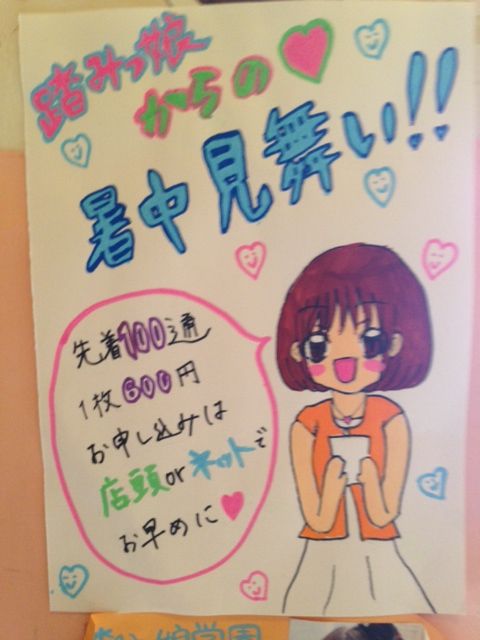 踏みっ娘
からの♥
暑中見舞い!!
先着100通
1枚600円
お申し込みは
店頭orネットで
お早めに♥